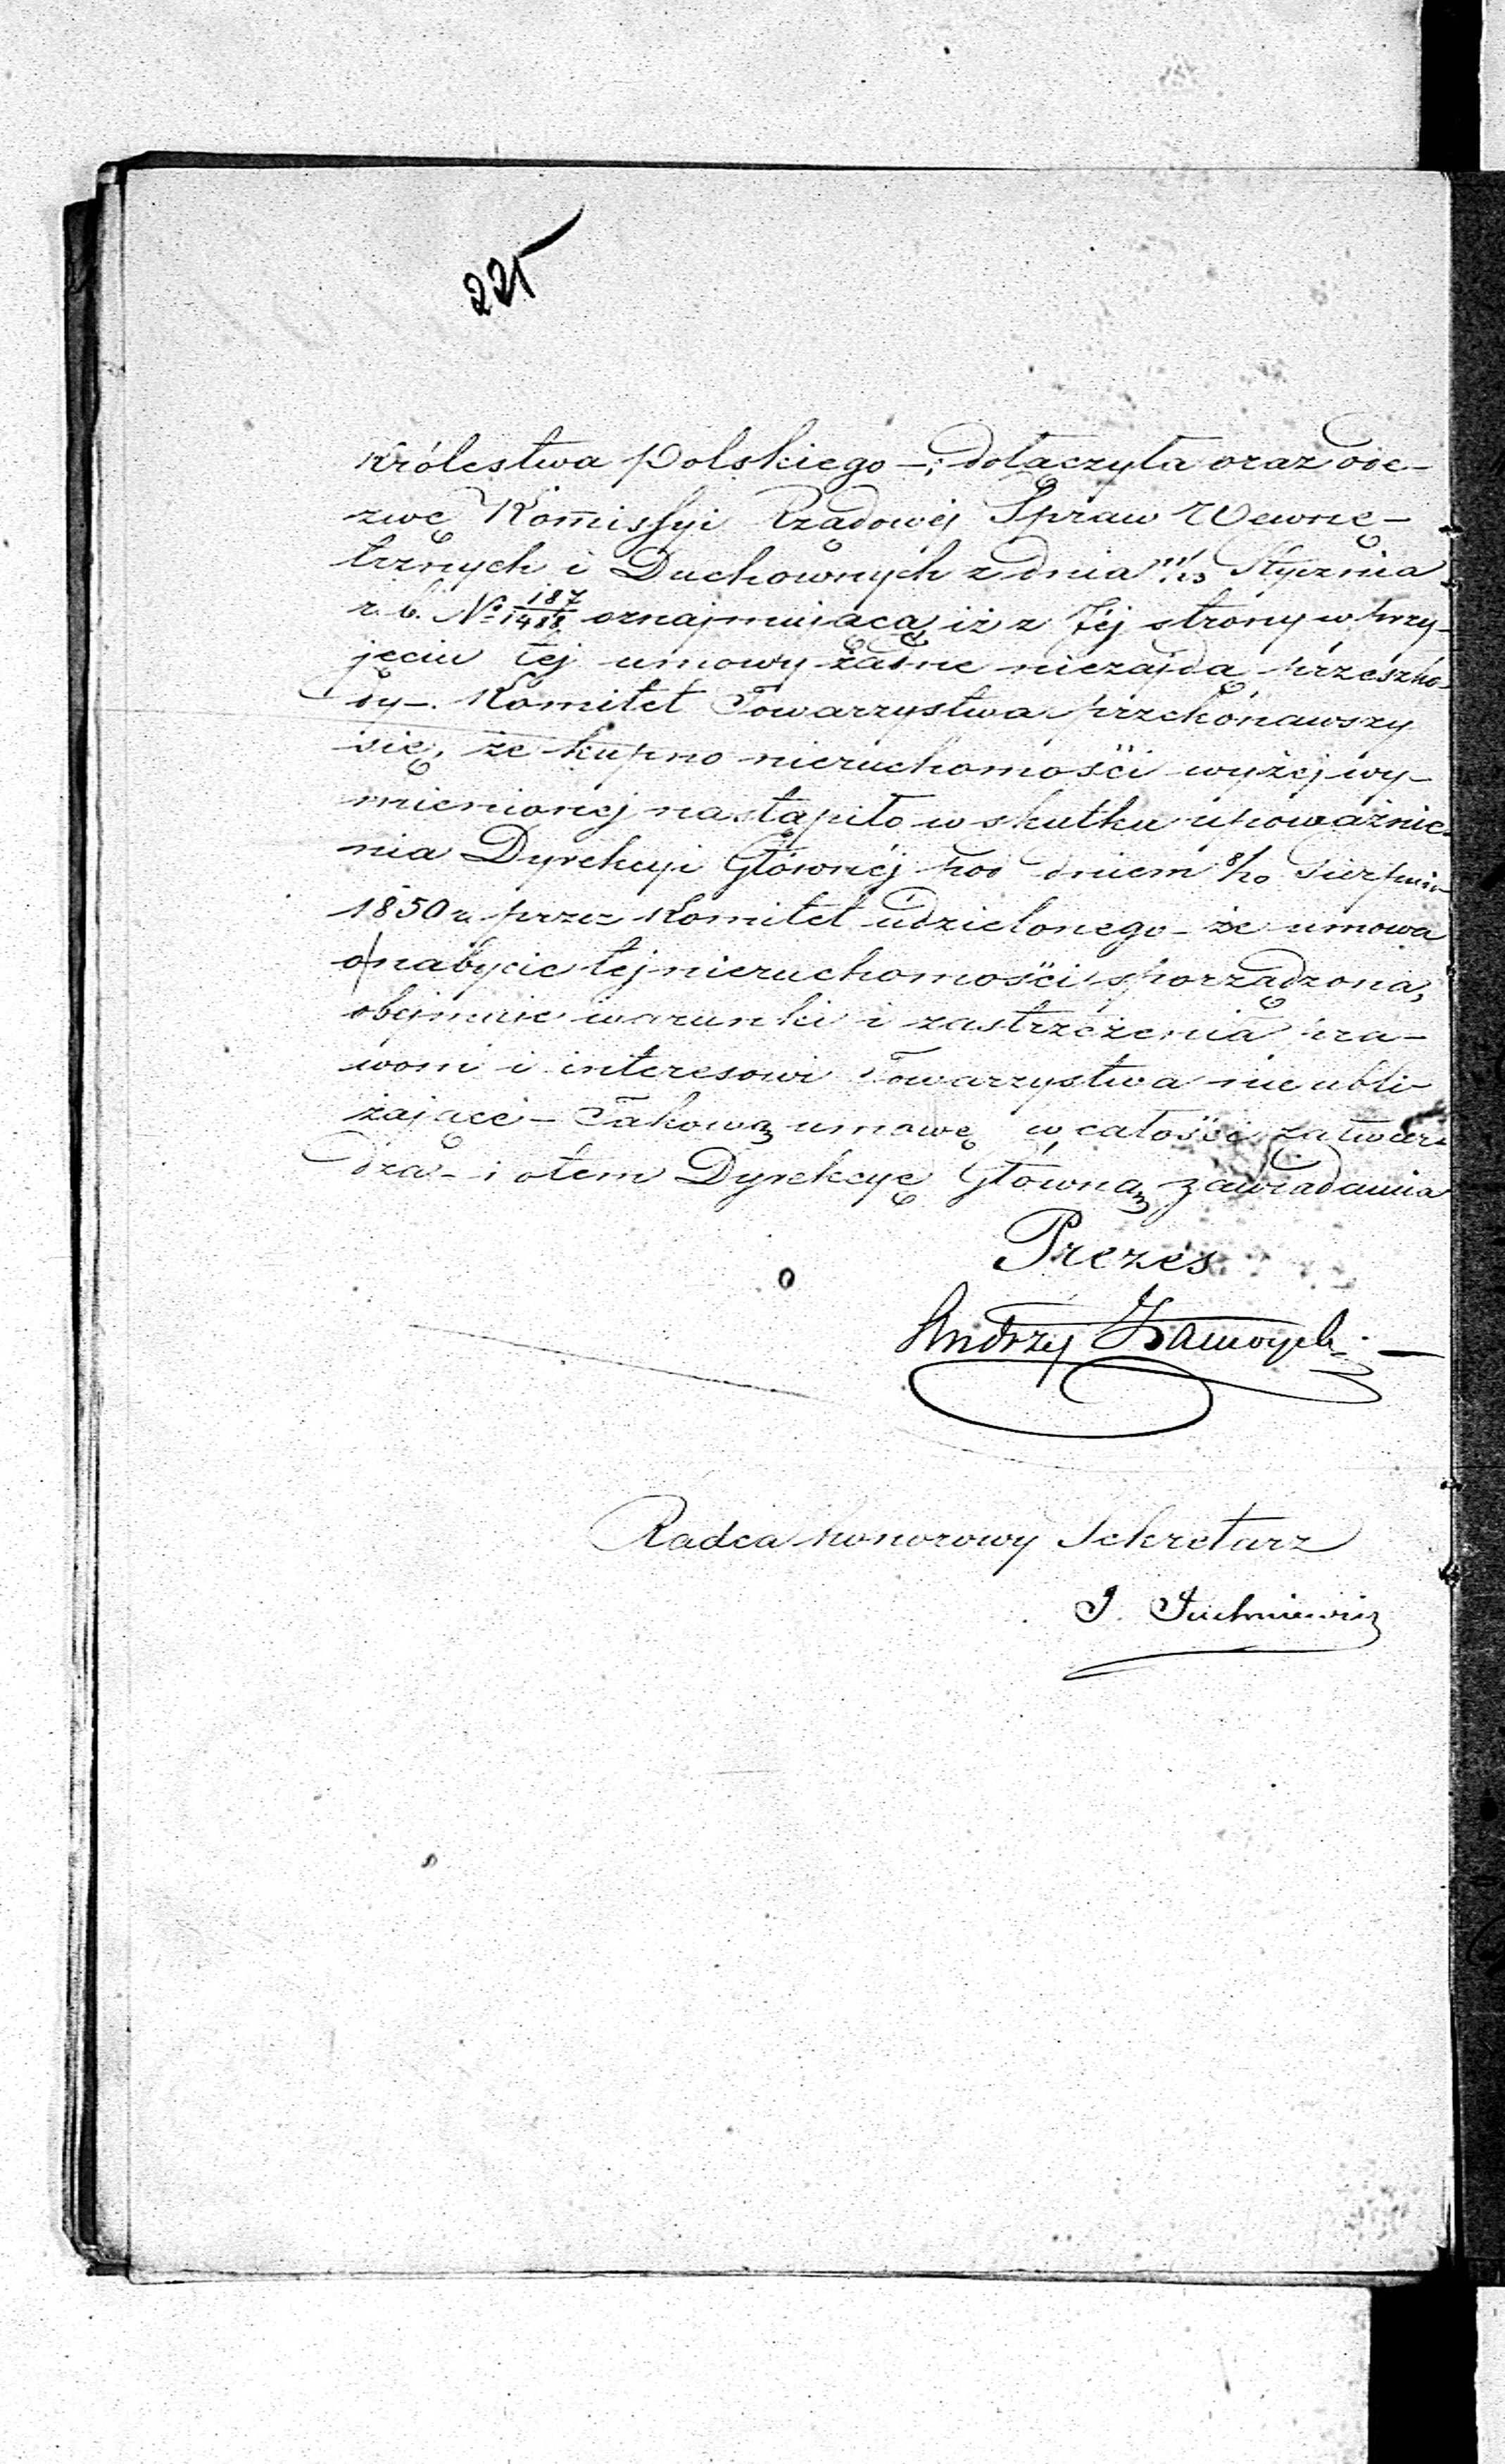 225
Królestwa Polskiego —; dołączyła oraz ode-
zwę Kommissyi Rządowéj Spraw Wewnę-
trznych i Duchownych z dnia 11/23 Stycznia
r. b. No 187/1488 oznajmującą, iż z Jéj strony w przy-
jęciu téj umowy żadne niezajdą przeszko-
dy —. Komitet Towarzystwa przekonawszy
się, że kupno nieruchomości wyżéj wy-
mienionéj nastąpiło w skutku upoważnie-
nia Dyrekcyi Głównéj pod dniem 8/20 Sierpnia
1850 r. przez Komitet udzielonego — że umowa
o nabycie téj nieruchomości sporządzona,
obejmuje warunki i zastrzeżenia pra-
wom i interesowi Towarzystwa nie ubli-
żające — Takową umowę w całości zatwier-
dza — i o tem Dyrekcyę Główną zawiadamia
Prezes
Andrzej Zamoyski
Radca honorowy Sekretarz
J. Juchniewicz